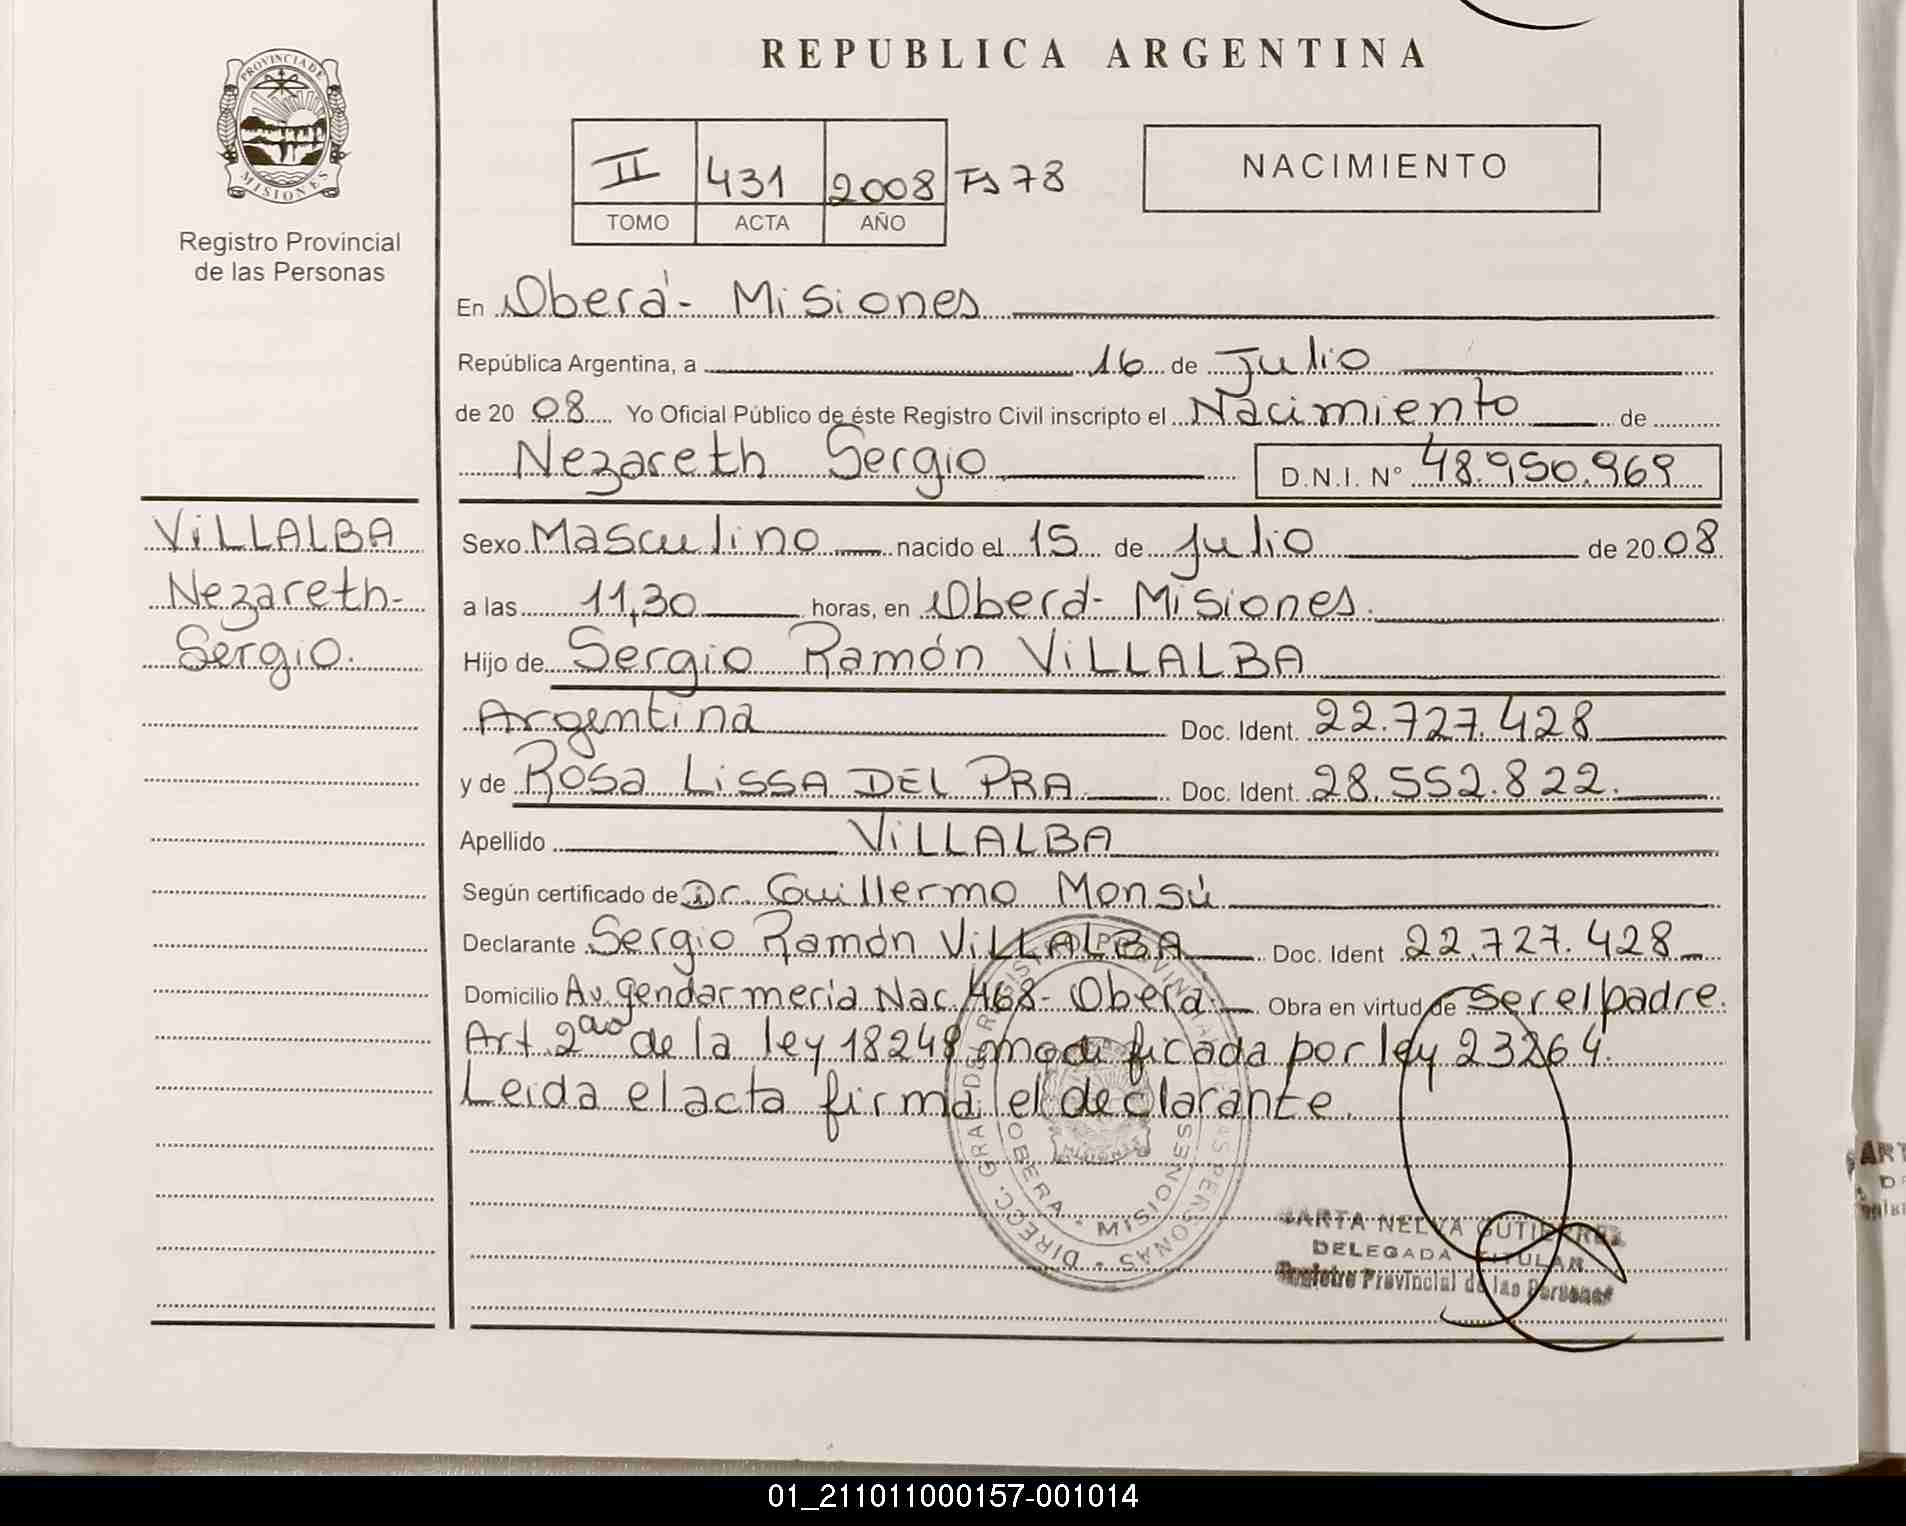 REPUBLICA ARGENTINA
PROVINCIA DE
MISIONES
Registro Provincial
de las Personas
II 431 2008 Fs 78
TOMO ACTA AÑO
NACIMIENTO
En Oberá - Misiones
República Argentina, a 16 de Julio
de 20 08 Yo Oficial Público de éste Registro Civil inscripto el Nacimiento de
Nezareth Sergio D.N.I. N° 48.950.969
VILLALBA
Nezareth-
Sergio.
Sexo Masculino nacido el 15 de Julio de 20 08
a las 11,30 horas, en Oberá - Misiones.
Hijo de Sergio Ramón VILLALBA
Argentina Doc. Ident. 22.727.428
y de Rosa LISSA DEL PRA Doc. Ident. 28.552.822.
Apellido VILLALBA
Según certificado de Dr. Guillermo Monsú
Declarante Sergio Ramón VILLALBA Doc. Ident 22.727.428
Domicilio Av. gendarmeria Nac. 468 - Oberá Obra en virtud de ser el padre.
Art. 2do de la ley 18248 modificada por ley 23264.
Leida el acta firma el declarante.
DIRECC. GRAL DE REGISTRO PROVINCIAL DE LAS PERSONAS
OBERA - MISIONES
MARTA NELVA GUTIERREZ
DELEGADA TITULAR
Registro Provincial de las Personas
01_211011000157-001014